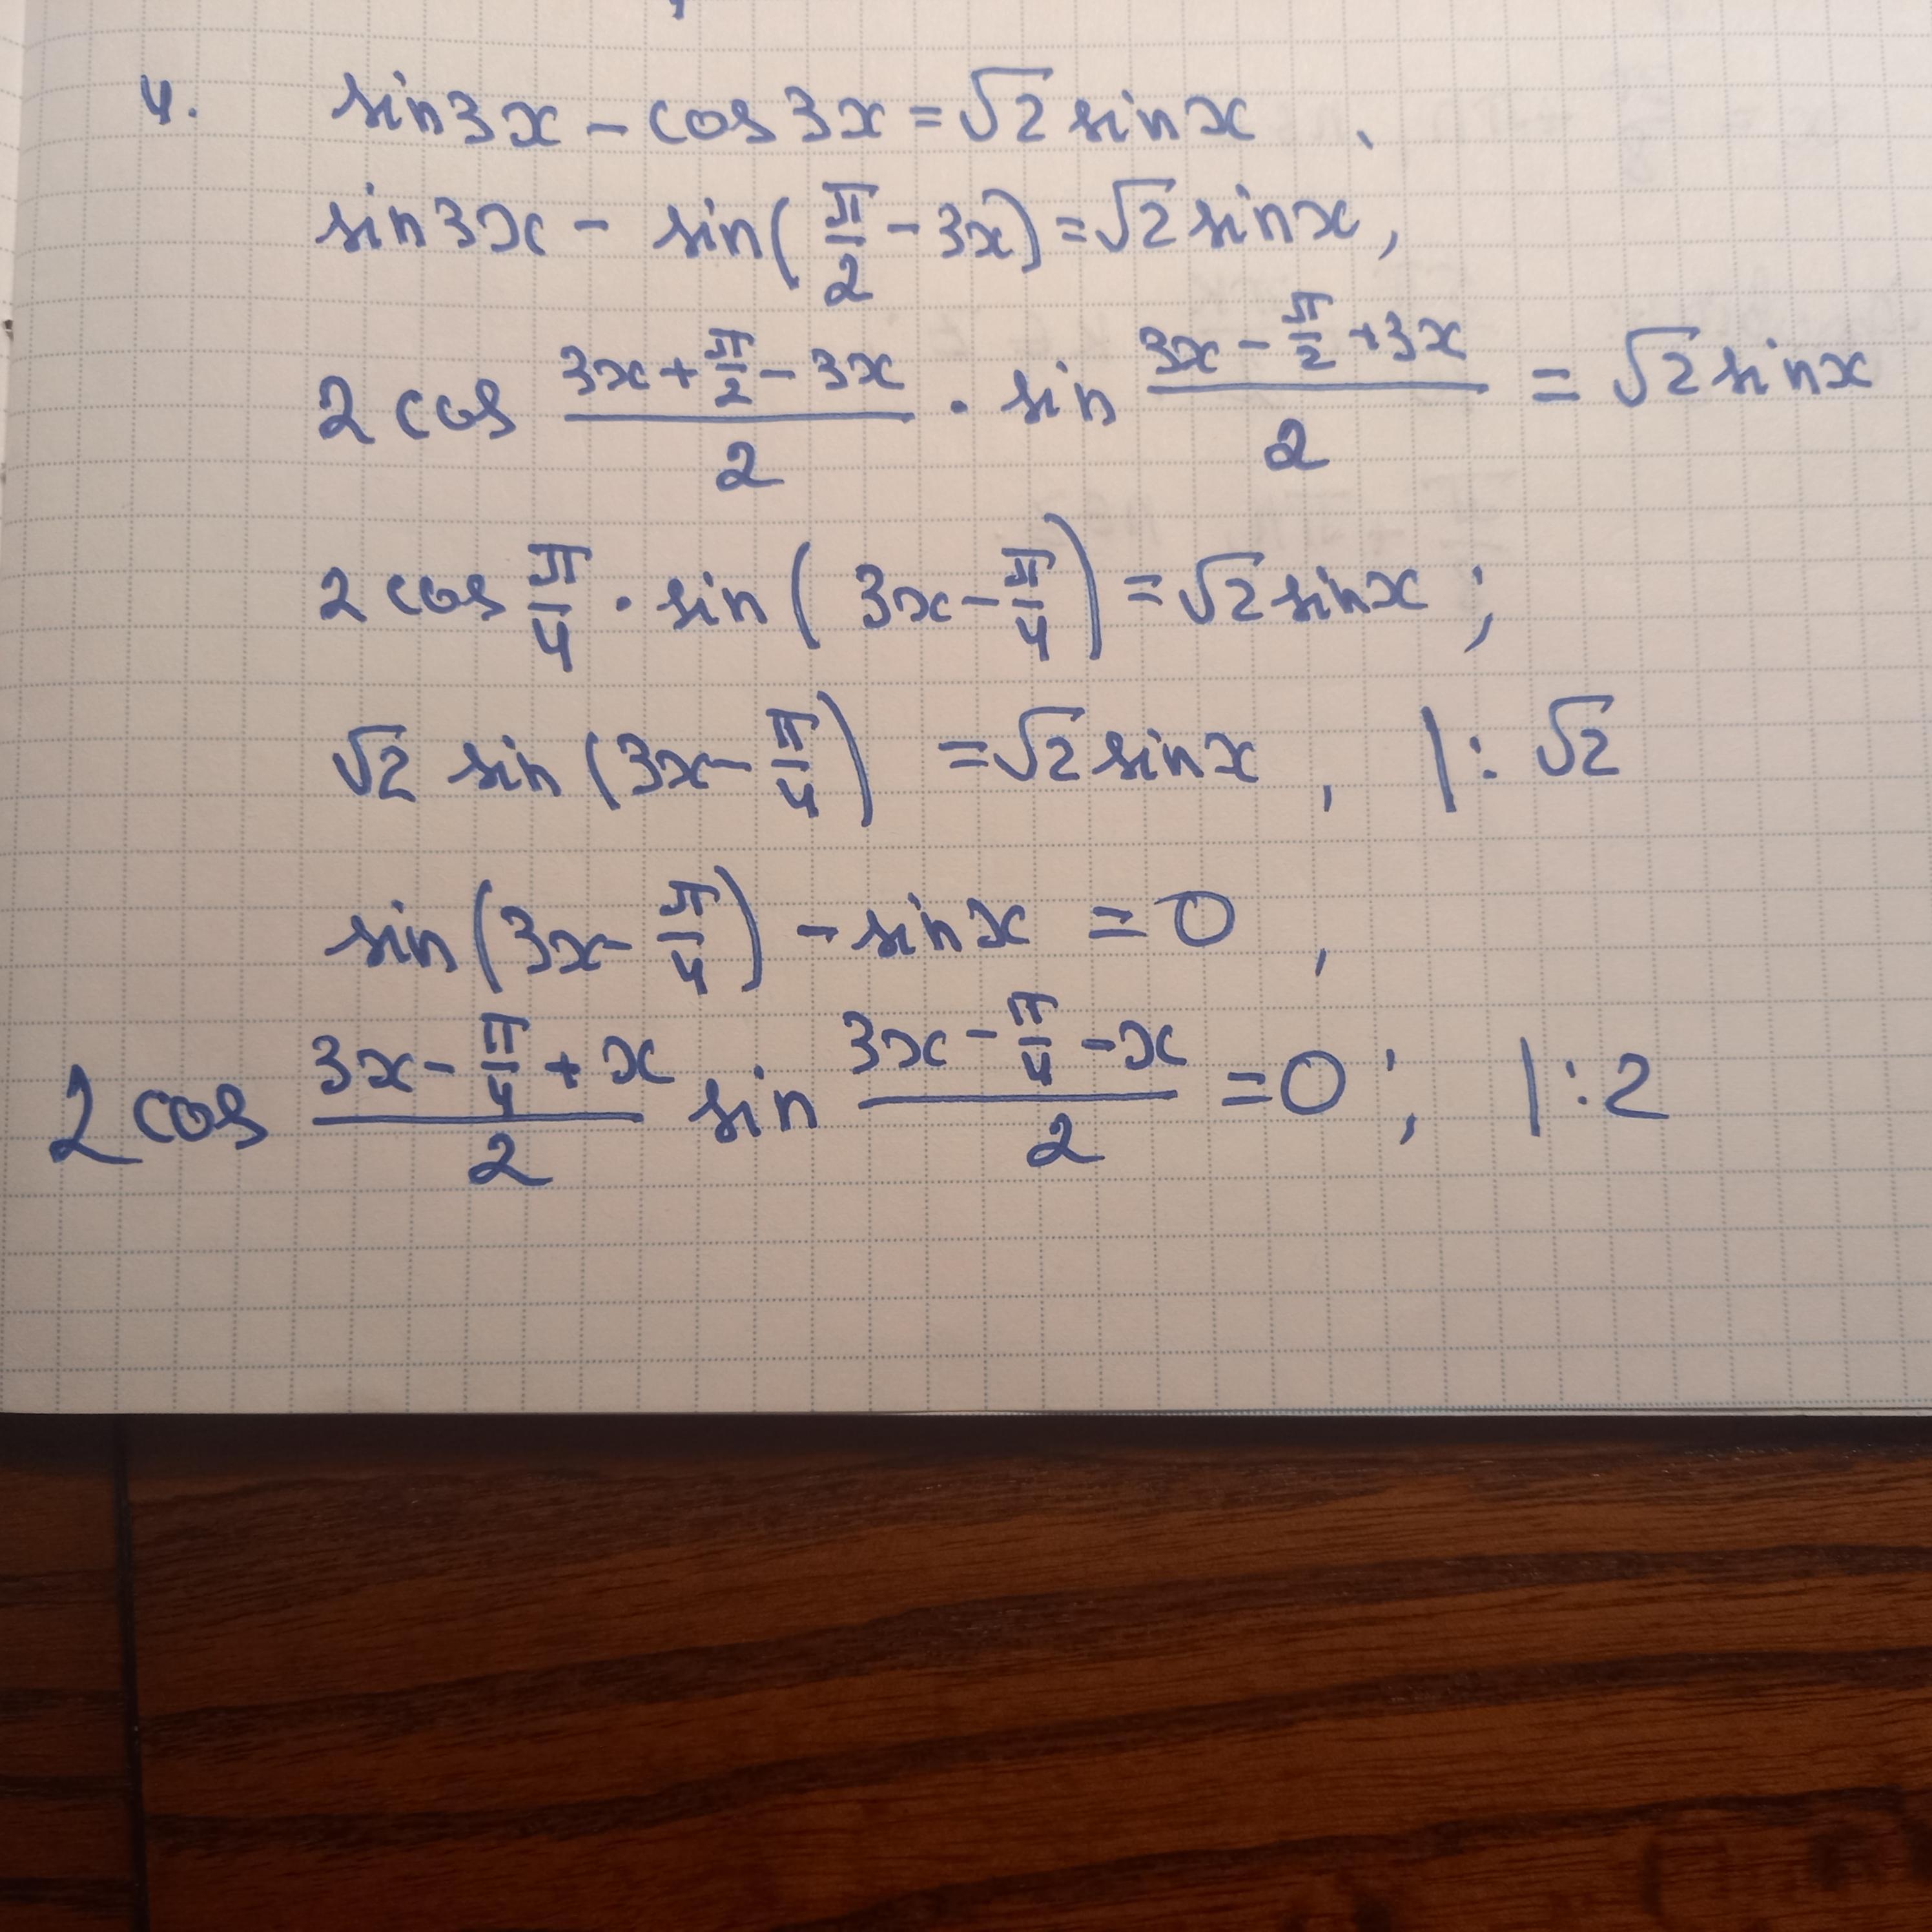 4. sin3x - cos3x = √2 sinx ,
sin3x - sin(π/2 - 3x) = √2 sinx,
2 cos (3x + π/2 - 3x)/2 · sin (3x - π/2 + 3x)/2 = √2 sinx
2 cos π/4 · sin(3x - π/4) = √2 sinx ;
√2 sin(3x - π/4) = √2 sinx , |: √2
sin(3x - π/4) - sinx = 0 ,
2 cos (3x - π/4 + x)/2 sin (3x - π/4 - x)/2 = 0 ; |:2